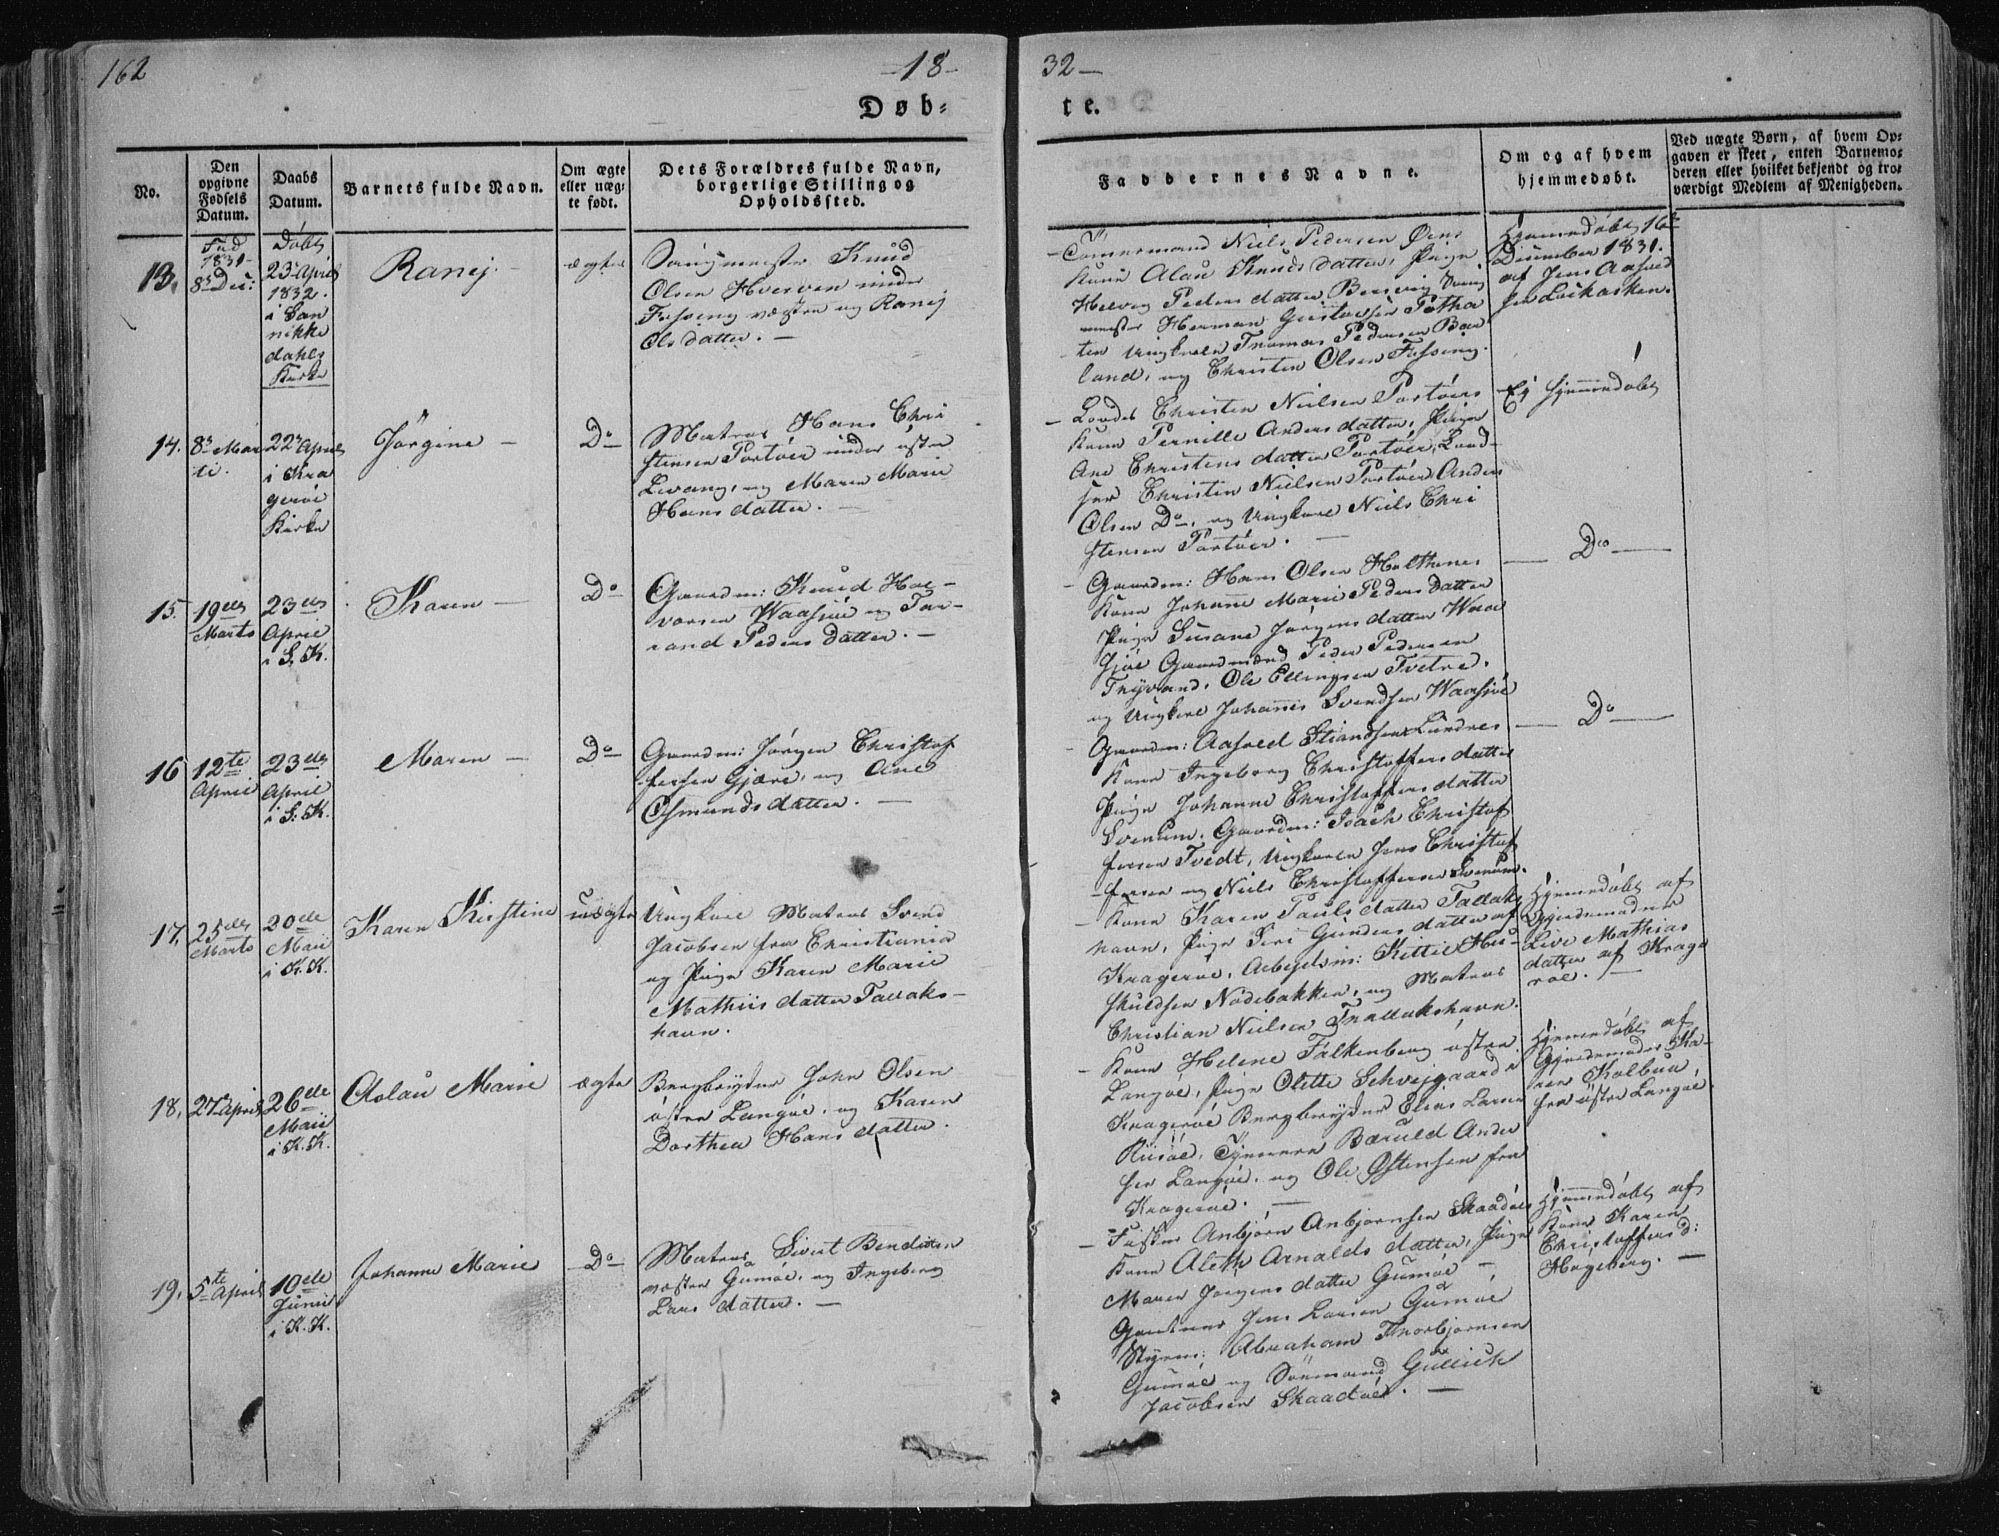 162
-18-
32-
Døb-
te.
No.
Den opgivne Fødsels Datum.
Daabs Datum.
Barnets fulde Navn.
Om ægte eller uægte født.
Dets Forældres fulde Navn, borgerlige Stilling og Opholdssted.
Faddernes Navne.
Om og af hvem hjemmedøbt.
Ved uægte Børn, af hvem Opgaven er skeet, enten Barnemoderen eller hvilket bekjendt og troværdigt Medlem af Menigheden.
13.
Fød
1831-
8de Dec:
Døbt
23 April
1832.
i San
nikke
dahls
Kirke
Ranej -
ægte
Knud
Olsen Hvesven under
Fossing væstre og Ranej
Olsdatter. -
Tømmermand Niels Pedersen Øens
Kone Alau Knudsdatter, Pige
Helvig Pedersdatter
mester Herman Gustavsen
Ungkarl Thomas Pedersen Bar
land, og Christen Olsen Fossing.
Hjemmedøbt 16de
December 1831.
af Jens Aasvid
sen Loikasken.
14.
8de Mar
ti.
22 April
i Kra
gerøe
Kirke
Jörgine -
Do
Matros Hans Chri
stensen Portöer under östre
Levang, og Maren Marie
Hansdatter. -
- Lods Christen Nielsen Portöers
Kone Pernille Andersdatter, Pige
Ane Christensdatter Portöer, Lood-
ser Christen Nielsen Portöer, Anders
Olsen Do, og Ungkarl Niels Chri
stensen Portöer. -
Ej hjemmedøbt
15.
19de
Marts
23de
April
i S. K.
Karen -
Do
Gaardm: Knud Hal-
vorsen Waasjöe og Tar-
rand Pedersdatter. -
- Gaardm: Hans Olsen Holthenes
Kone Johanne Marie Pedersdatter
Pige Susane Jörgensdatter Waa
sjöe Gaardmænd Peder Pedersen
Trijvand, Ole Ellingsen Tvetne.
og Ungkarl Johannes Svendsen Waasjöe
- Do -
16
12te
April
23de
April
i S. K.
Maren -
Do
Gaardm: Jörgen Christof
fersen Gjære, og Ane
Osmundsdatter. -
- Gaardm: Aasved Strandsen Lundnes
Kone Ingeborg Christoffersdatter
Pige Johanne Christoffersdatter
Svenum. Gaardm: Isach Christof
fersen Tvedt, Ungkarle Jens Christof
fersen og Niels Christoffersen Svenum.
- Do -
17.
25de
Marts
20de
Maii
i K. K.
Karen Kirstine
uægte
Ungkarl Matros Svend
Jacobsen fra Christiania
og Pige Karen Marie
Mathiisdatter Tallaks-
havn.
- Kone Karen Paulsdatter Tallaks
havn, Pige Siri Gundersdatter af
Kragerøe, Arbejdsm: Kittil Hu-
skuldsen Nödebakken, og Matros
Christian Nielsen Trallakshavn.
Hjemmedøbt af
Gjordemoder
Live Mathias
datter af Krage
røe. -
18.
27 April
26de
Maii
i K. K.
Aslau Marie
ægte
Bergbryder John Olsen
östre Langøe, og Karen
Dorthea Hansdatter.
- Kone Helene Falkenberg östre
Langøe, Pige Olette Schvejgaard i
Kragerøe Bergbryder Elias Larsen
Riisöe, Tömmerm Bæruld Ander
sen Langøe, og Ole Østensen fra
Kragerøe. -
Hjemmedøbt af
Gjordemoder Ka-
ren Kolbua
fra östre Langøe.
19.
5te April
10de
Junii
i K. K.
Johanne Marie
Do
Matros Sivert Bendixen
væstre Gumöe, og Ingeborg
Larsdatter. -
- Fisker Anbjörn Anbjörnsen Skaadöes
Kone Aleth Arnaldsdatter, Pige
Maren Jörgensdatter Gumöe -
Jens Larsen Gumöe
Styrm: Abraham Thorbjörnsen
Gumöe og Sömand Gullich
Jacobsen Skaadöe. -
Hjemmedøbt af
Kone Karen
Christoffersd:
Hageberg. -